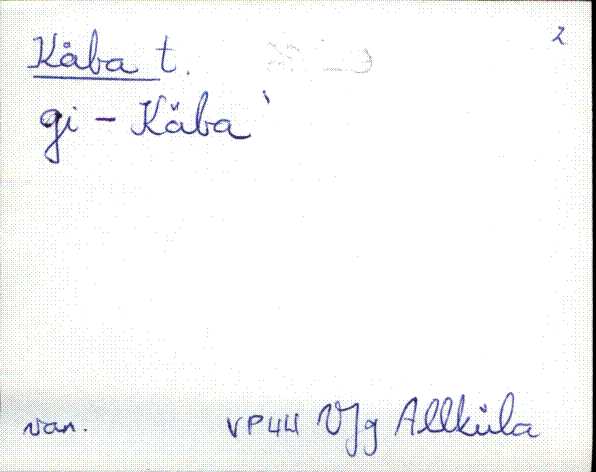 2
Kåba t.
gi - Käba`
van. VP44 Vjg Allküla